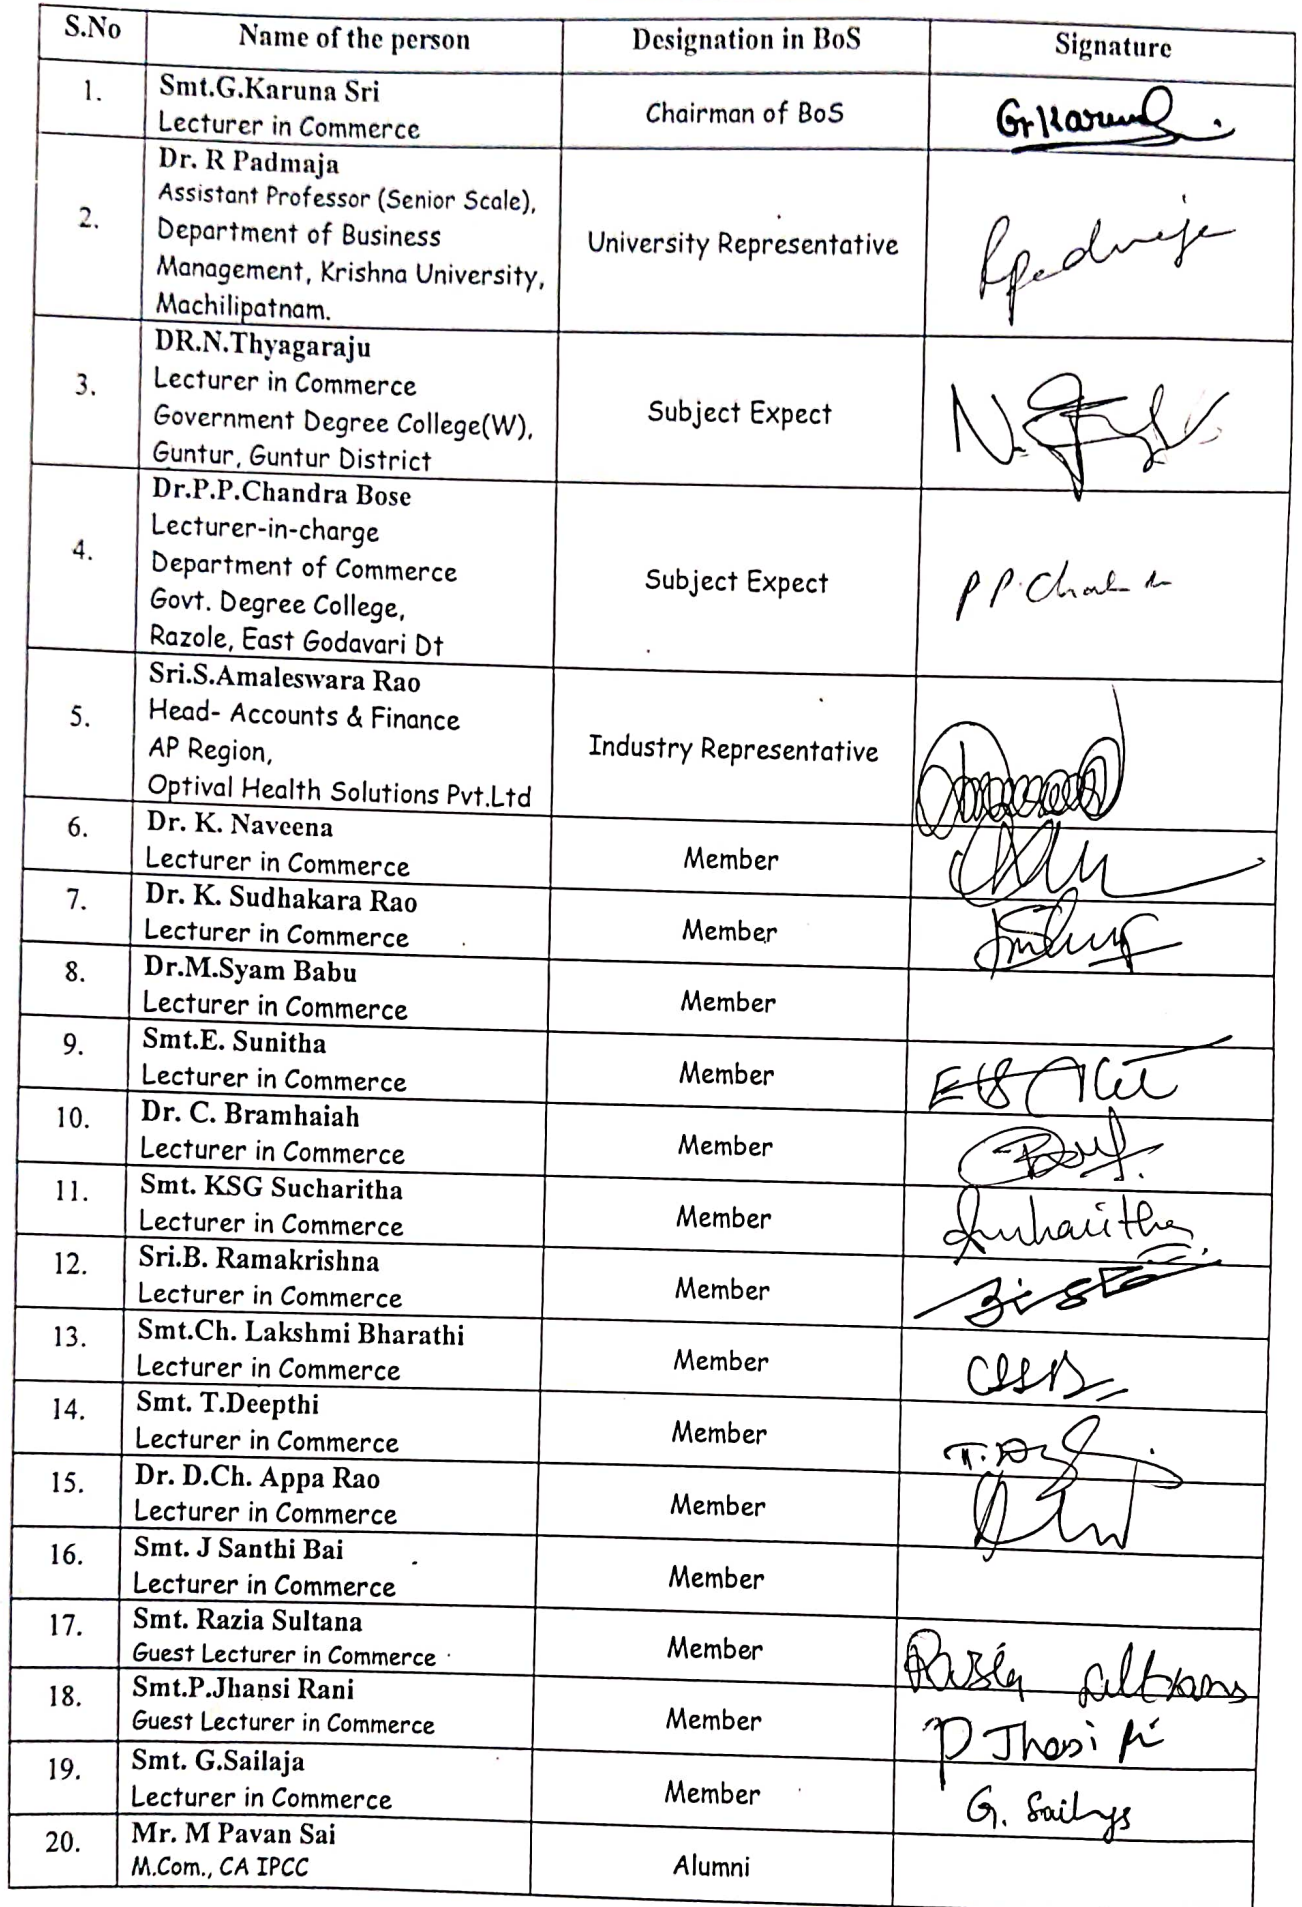 S.No Name of the person Designation in BoS Signature
1. Smt.G.Karuna Sri
Lecturer in Commerce Chairman of BoS G.Karuna
2. Dr. R Padmaja
Assistant Professor (Senior Scale),
Department of Business
Management, Krishna University,
Machilipatnam. University Representative Rpadmaja
3. DR.N.Thyagaraju
Lecturer in Commerce
Government Degree College(W),
Guntur, Guntur District Subject Expect N.
4. Dr.P.P.Chandra Bose
Lecturer-in-charge
Department of Commerce
Govt. Degree College,
Razole, East Godavari Dt Subject Expect P P.
5. Sri.S.Amaleswara Rao
Head- Accounts & Finance
AP Region,
Optival Health Solutions Pvt.Ltd Industry Representative
6. Dr. K. Naveena
Lecturer in Commerce Member
7. Dr. K. Sudhakara Rao
Lecturer in Commerce Member
8. Dr.M.Syam Babu
Lecturer in Commerce Member
9. Smt.E. Sunitha
Lecturer in Commerce Member
10. Dr. C. Bramhaiah
Lecturer in Commerce Member
11. Smt. KSG Sucharitha
Lecturer in Commerce Member
12. Sri.B. Ramakrishna
Lecturer in Commerce Member
13. Smt.Ch. Lakshmi Bharathi
Lecturer in Commerce Member
14. Smt. T.Deepthi
Lecturer in Commerce Member
15. Dr. D.Ch. Appa Rao
Lecturer in Commerce Member
16. Smt. J Santhi Bai
Lecturer in Commerce Member
17. Smt. Razia Sultana
Guest Lecturer in Commerce Member
18. Smt.P.Jhansi Rani
Guest Lecturer in Commerce Member
19. Smt. G.Sailaja
Lecturer in Commerce Member G.
20. Mr. M Pavan Sai
M.Com., CA IPCC Alumni